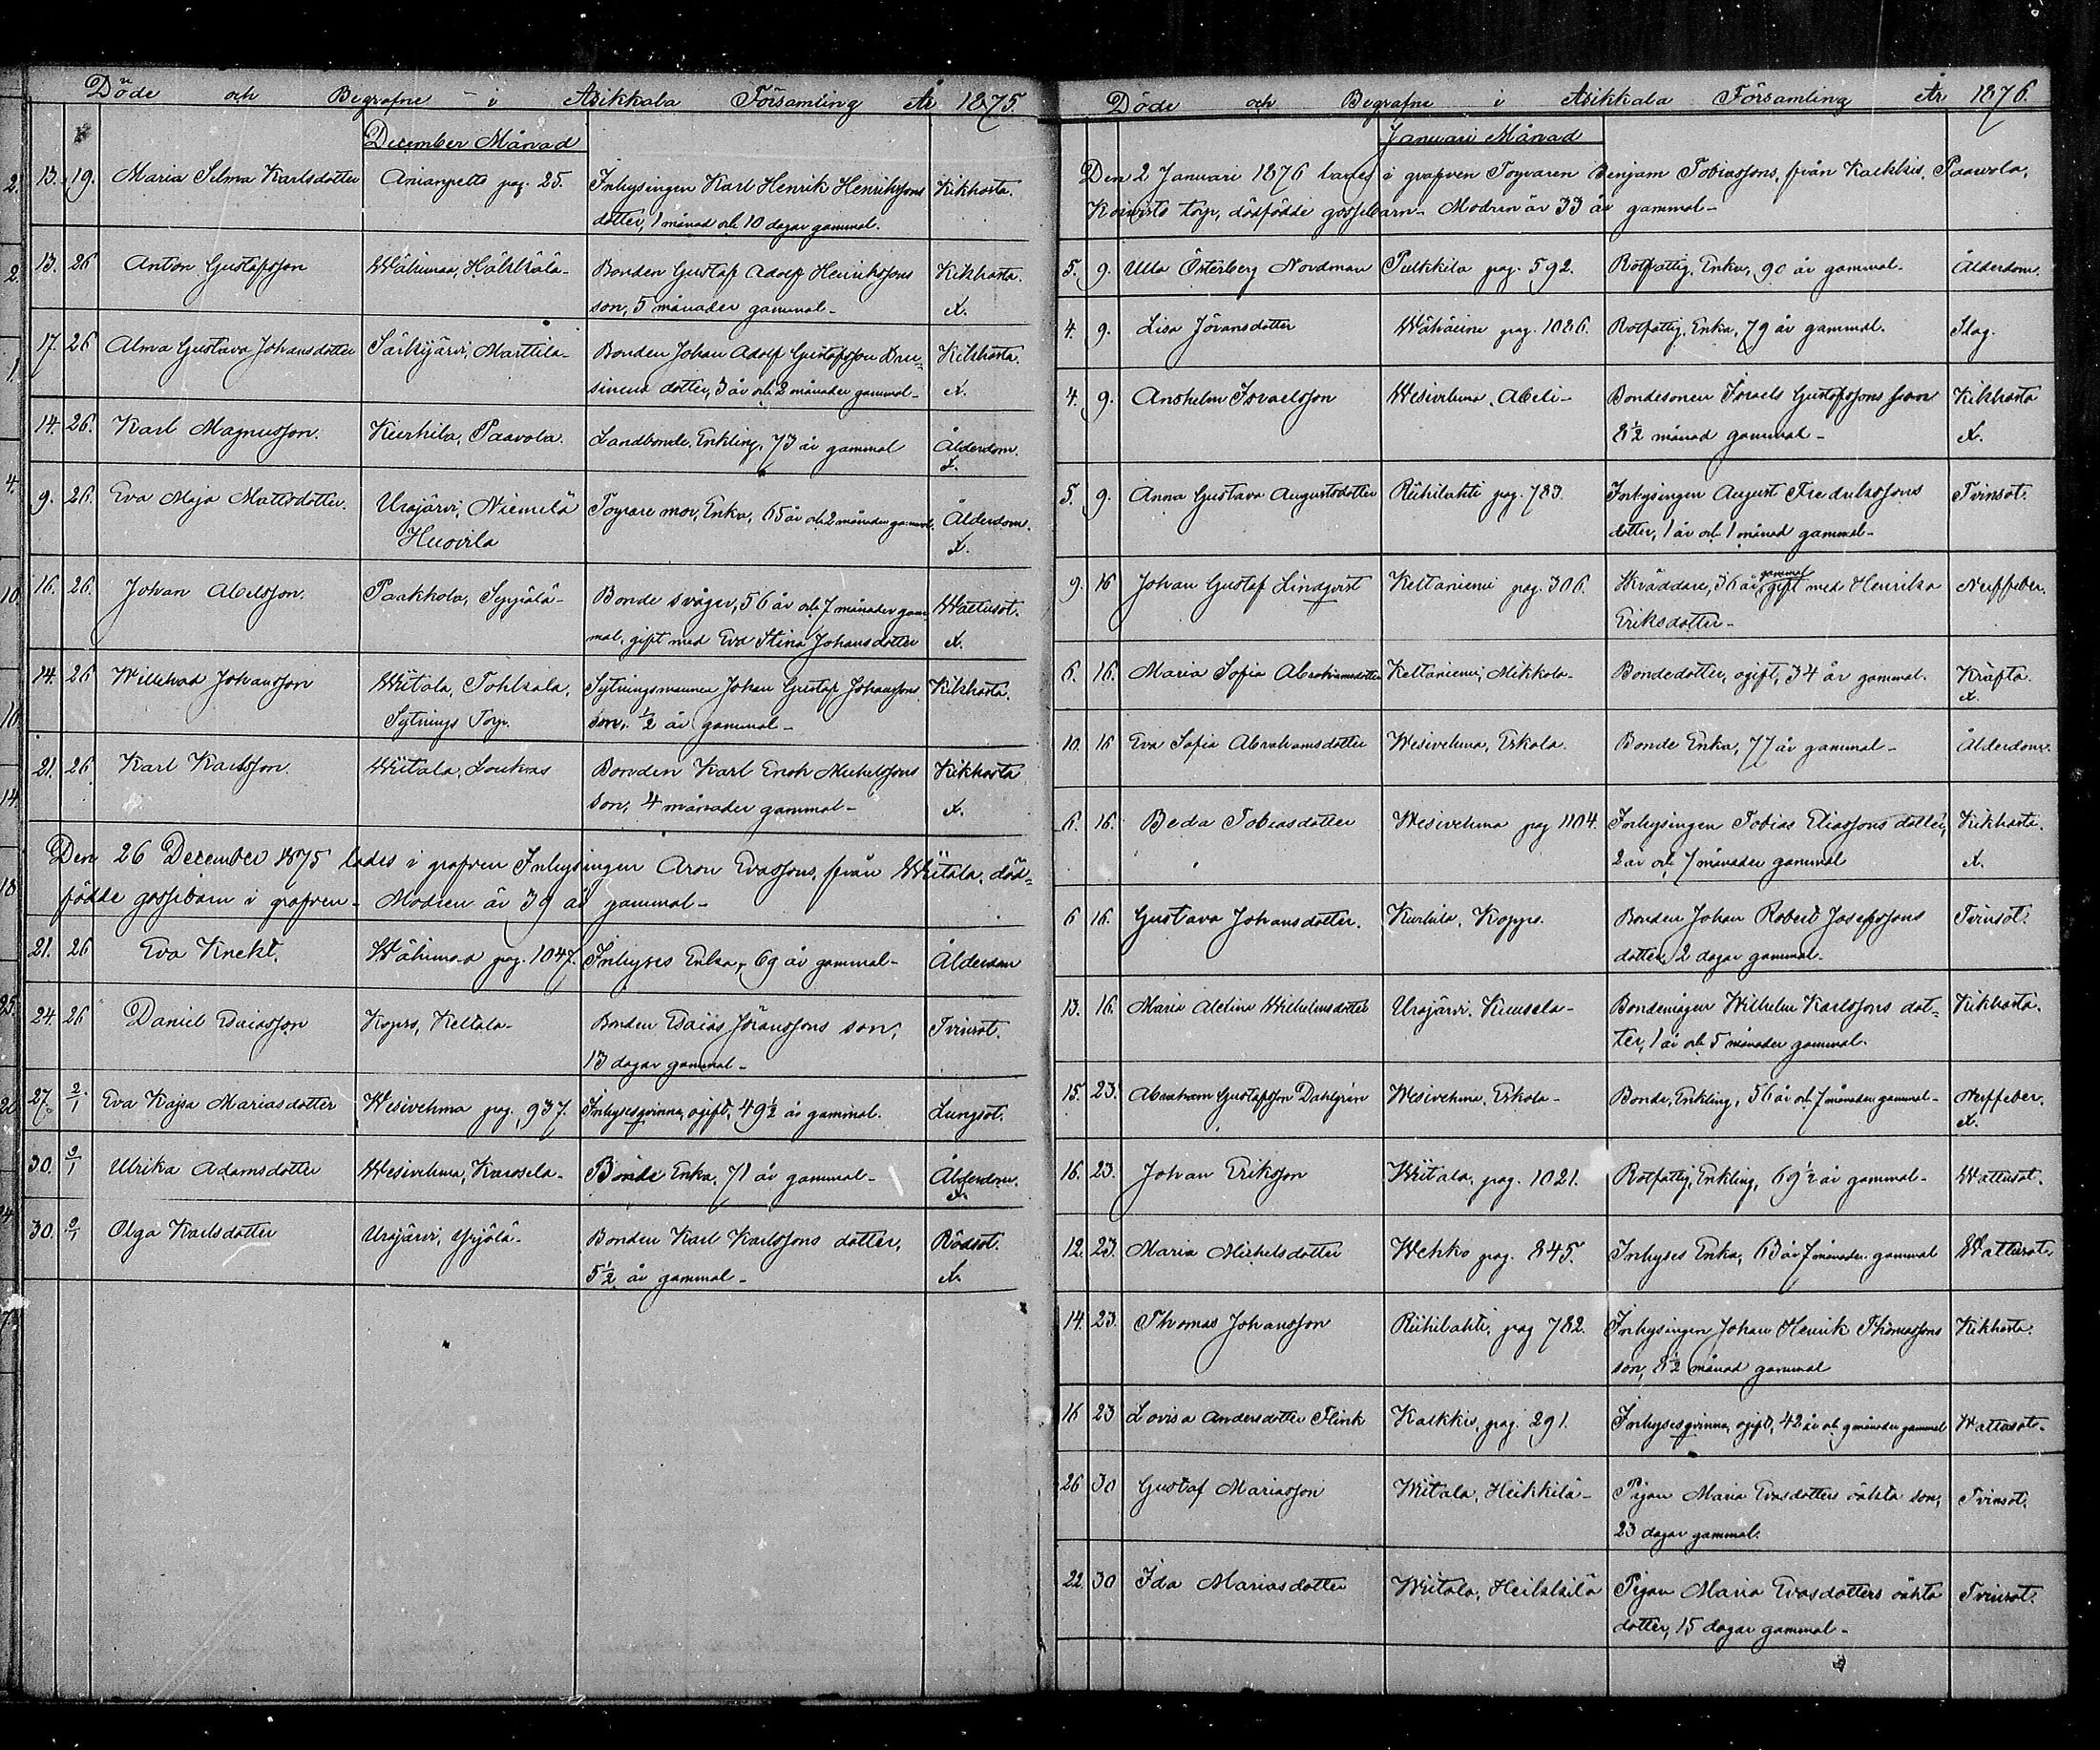 Döde och Begrafne i Asikkala Församling År 1875.
December Månad
13. 19. Maria Selma Karlsdotter Anianpelto pag. 25. Inhysingen Karl Henrik Henrikssons Kikhosta.
dotter, 1 månad och 10 dagar gammal.
13. 26 Anton Gustafsson Wähimaa, Häkkälä- Bonden Gustaf Adolf Henrikssons Kikhosta.
son, 5 månader gammal- x.
17. 26 Alma Gustava Johansdotter Särkijärvi, Marttila- Bonden Johan Adolf Gustafsson Kikhosta.
dotter, 3 år och 2 månader gammal- x.
14. 26. Karl Magnusson. Kurhila, Paavola. Landbonde, Enkling, 73 år gammal Ålderdom.
x.
9. 26. Eva Maja Mattsdotter. Urajärvi, Niemilä Torpare mor, Enka, 65 år och 2 månader gammal. Ålderdom.
Huovila x.
16. 26. Johan Abelsson. Paakkola, Seppälä- Bonde svåger, 56 år och 7 månader gam Wattusot.
mal, gift med Eva Stina Johansdotter x.
14. 26 Willehad Johansson Wiitala, Pohkala, Sytningsmannen Johan Gustaf Johanssons Kikhosta.
Sytnings Torp. son, ½ år gammal-
21. 26 Karl Karlsson. Wiitala, Loukas Bonden Karl Enok Michelssons Kikhosta
son, 4 månader gammal- x.
Den 26 December 1875 lades i grafven Inhysingen Aron Evassons, från Wiitala, död=
födde gossebarn i grafven- Modren är 39 år gammal-
21. 26 Eva Knekt. Wähimaa pag. 1047. Inhyses Enka, 69 år gammal- Ålderdom
24. 26 Daniel Esaiasson Kopso, Keltala- Bonden Esaias Jöranssons son, Tvinsot.
13 dagar gammal-
27. 2/1 Eva Kajsa Mariasdotter Wesivehma pag. 937. Inhysesqvinna, ogift, 49½ år gammal. Lungsot.
30. 2/1 Ulrika Adamsdotter Wesivehma, Karosela- Bonde Enka, 71 år gammal- Ålderdom.
x.
30. 2/1 Olga Karlsdotter Urajärvi, Yrjölä- Bonden Karl Karlssons dotter, Rödsot.
5½ år gammal- x.
Döde och Begrafne i Asikkala Församling År 1876.
Januari Månad
Den 2 Januari 1876 lades i grafven Torparen Benjam Tobiassons, från Kalkkis, Paavola,
Koivisto torp, dödfödde gossebarn- Modren är 33 år gammal-
5. 9. Ulla Österberg Nordman Pulkkila pag. 592. Rotfattig, Enka, 90 år gammal- Ålderdom.
4. 9. Lisa Jöransdotter Wähäime pag. 1086. Rotfattig, Enka, 79 år gammal. Slag.
4. 9. Anshelm Israelsson Wesivehma, Abeli- Bondesonen Israels Gustafssons son Kikhosta
8½ månad gammal- x.
5. 9. Anna Gustava Augustsdotter Riihilahti pag. 783. Inhysingen August Fredrikssons Tvinsot.
dotter, 1 år och 1 månad gammal-
9. 16 Johan Gustaf Lindqvist Keltaniemi pag. 306. Skräddare, 36 år gammal gift med Henrika Nerffeber.
Eriksdotter-
6. 16. Maria Sofia Abrahamsdotter Keltaniemi, Mikkola- Bondedotter, ogift, 34 år gammal. Kräfta.
x.
10. 16 Eva Sofia Abrahamsdotter Wesivehma, Erkola. Bonde Enka, 77 år gammal- Ålderdom.
6. 16. Beda Tobiasdotter Wesivehma pag 1104. Inhysingen Tobias Eliassons dotter, Kikhosta.
2 år och 7 månader gammal x.
6 16. Gustava Johansdotter. Kurhila, Koppo. Bonden Johan Robert Josefssons Tvinsot.
dotter, 2 dagar gammal-
13. 16. Maria Aletina Wilhelmsdotter Urajärvi, Kuusela- Bondemågen Wilhelm Karlssons dot= Kikhosta.
ter, 1 år och 5 månader gammal.
15. 23. Abraham Gustafsson Dahlgrén Wesivehma, Erkola- Bonde, Enkling, 56 år och 7 månader gammal- Nerffeber.
x.
16. 23. Johan Eriksson Wiitala, pag. 1021. Rotfattig, Enkling, 69½ år gammal- Wattusot.
12. 23. Maria Michelsdotter Wehko pag. 845. Inhyses Enka, 63 år 7 månader gammal Wattusot.
14. 23. Thomas Johansson Riihilahti, pag 782. Inhysingen Johan Henrik Thomassons Kikhosta.
son, 8½ månad gammal
16 23 Lovisa Andersdotter Flink Kalkkis, pag. 291. Inhysesqvinna, ogift, 42 år och 9 månader gammal Wattusot-
26 30 Gustaf Mariasson Wiitala, Heikkilä- Pigan Maria Evasdotters oäkta son, Tvinsot.
23 dagar gammal.
22. 30 Ida Mariasdotter Wiitala, Heikkilä Pigan Maria Evasdotters oäkta Tvinsot.
dotter, 15 dagar gammal-